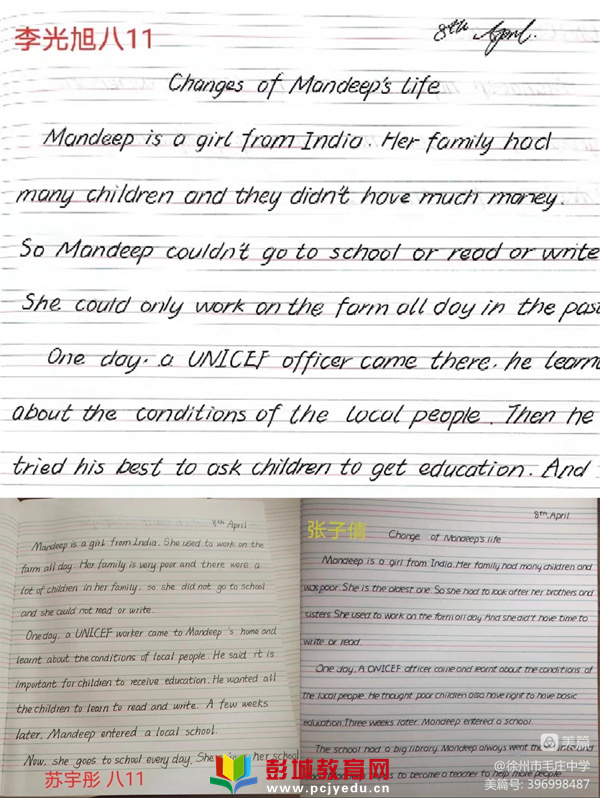 李光旭八11
8th April.
Changes of Mandeep's life
Mandeep is a girl from India. Her family had
many children and they didn't have much money.
So Mandeep couldn't go to school or read or write
She could only work on the farm all day in the pas
One day, a UNICEF officer came there, he learn
about the conditions of the local people. Then he
tried his best to ask children to get education. And
8th April
Mandeep is a girl from India. She used to work on the
farm all day. Her family is very poor and there were a
lot of children in her family, so she did not go to school
and she could not read or write.
One day, a UNICEF worker came to Mandeep's home and
learnt about the conditions of local people. He said it is
important for children to receive education. He wanted all
the children to learn to read and write. A few weeks
later, Mandeep entered a local school.
Now, she goes to school every day. She her school
苏宇彤 八11
8th. April
张子倩
Change of Mandeep's life
Mandeep is a girl from India. Her family had many children and
was poor. She is the oldest one. So she had to look after her brothers and
sisters. She used to work on the farm all day. And she didn't have time to
write or read.
One day, A UNICEF officer came and learnt about the conditions of
the local people. He thought poor children also have right to have basic
education. Three weeks later, Mandeep entered a school.
The school had a big library. Mandeep always went there
to become a teacher to help more people.
彭城教育网
www.pcjyedu.cn
美篇
@徐州市毛庄中学
美篇号: 396998487